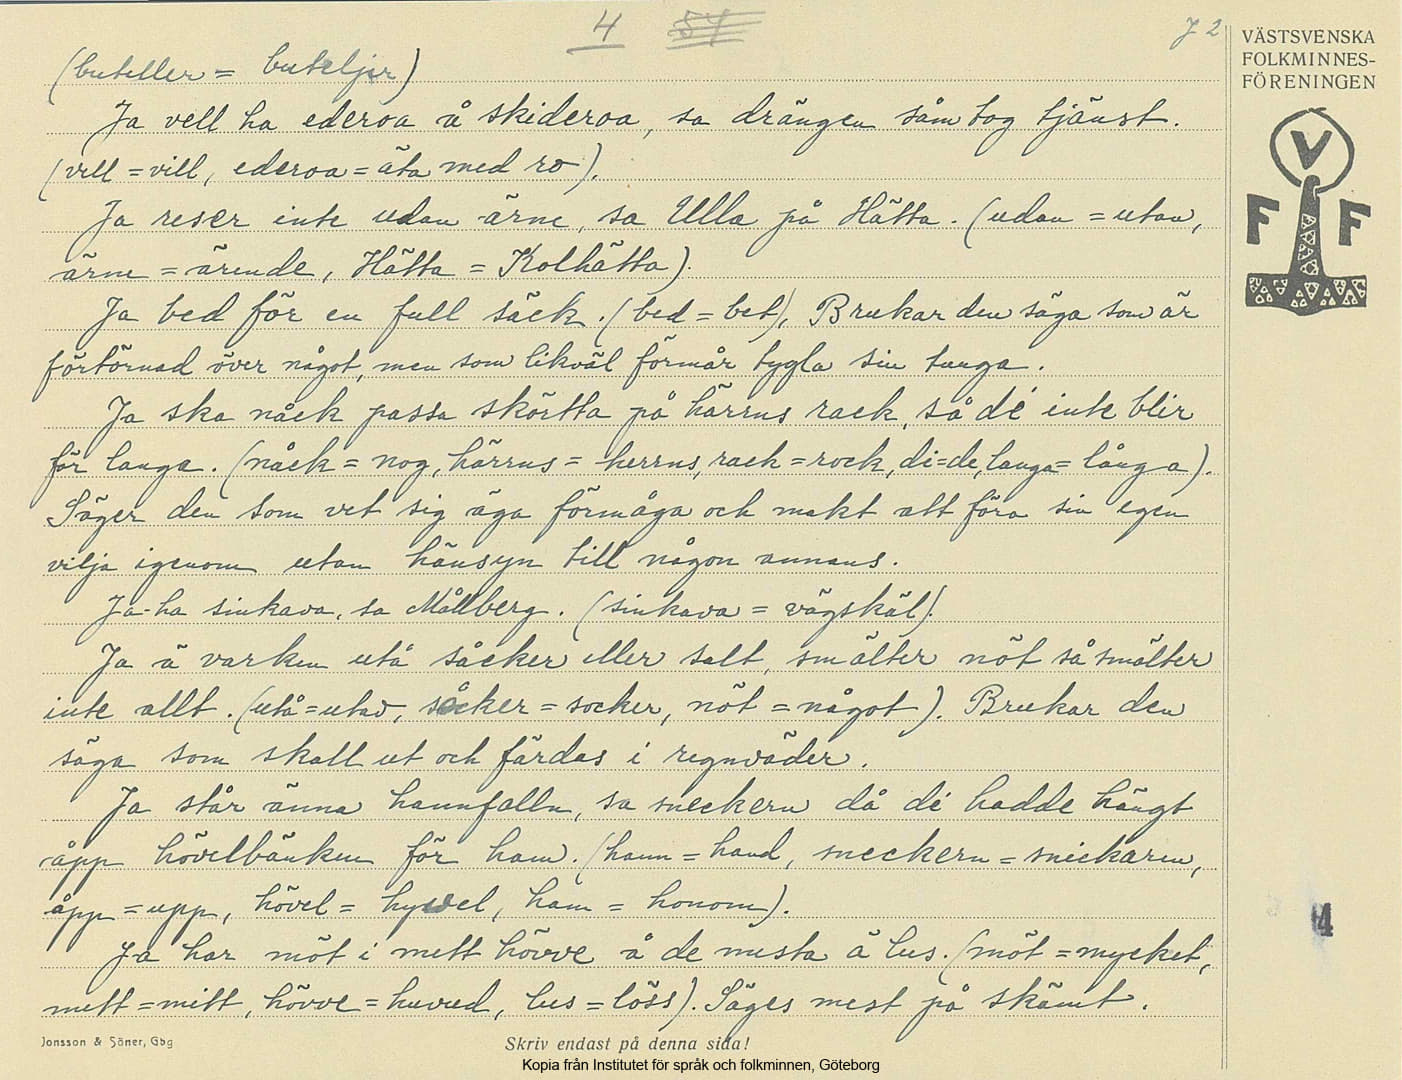 4 54 J 2
VÄSTSVENSKA
FOLKMINNES-
FÖRENINGEN
V
F F
(buteller = buteljer)
Ja vell ha ederoa å skideroa, sa drängen såm tog tjänst.
(vell = vill, ederoa = äta med ro).
Ja reser inte udan ärne, sa Ulla på Hätta. (udan = utan,
ärne = ärende, Hätta = Kolhätta).
Ja bed för en full säck. (bed = bet), Brukar den säga som är
förtörnad över något, men som likväl förmår tygla sin tunga.
Ja ska nåck passa skörtta på härrns rack, så dé inte blir
för langa. (nåck = nog, härrns = herrns, rack = rock, di = de, langa = långa).
Säger den som vet sig äga förmåga och makt att föra sin egen
vilja igenom utan hänsyn till någon annans.
Ja-ha sinkava, sa Mållberg. (sinkava = vägskäl).
Ja ä varken utå såcker eller salt, smälter nöt så smälter
inte allt. (utå = utav, såcker = socker, nöt = något). Brukar den
säga som skall ut och färdas i regnväder.
Ja står änna hannfalln, sa sneckern då dé hadde hängt
åpp hövelbänken för ham. (hann = hand, sneckern = snickaren,
åpp = upp, hövel = hyvel, ham = honom).
Ja har möt i mett hövve å de mesta ä lus. (möt = mycket,
mett = mitt, hövve = huvud, lus = löss). Säges mest på skämt.
4
Jonsson & Söner, Gbg Skriv endast på denna sida!
Kopia från Institutet för språk och folkminnen, Göteborg